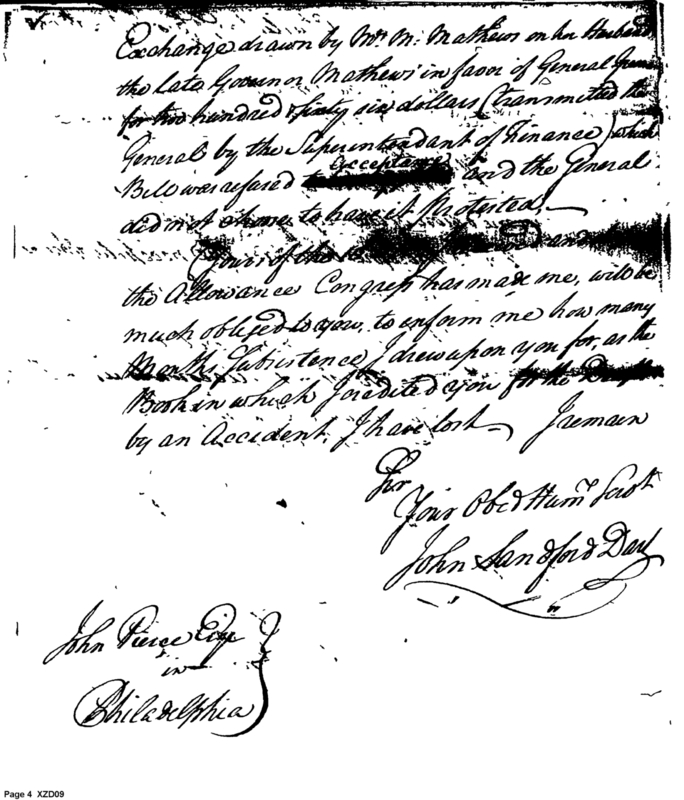 Exchange drawn by Mrs M: Mathews on her Husband
the late Governor Mathews in favor of General
for two hundred & fifty six dollars (transmitted the
General by the Superintendant of Finance) which
acceptance
Bill was refused and the General
did not chose to have it Protested,—
Yours of the and
the Allowance Congress has made me, will be
much obliged to you, to enform me how many
Months Subsistence I drew upon you for, as the
Book in which I credited you for the
by an Accident, I have lost — I remain
Sir
Your Obed Hum Servt
John Sandford Dart
John Pierce Esqr
in
Philadelphia
Page 4 XZD09